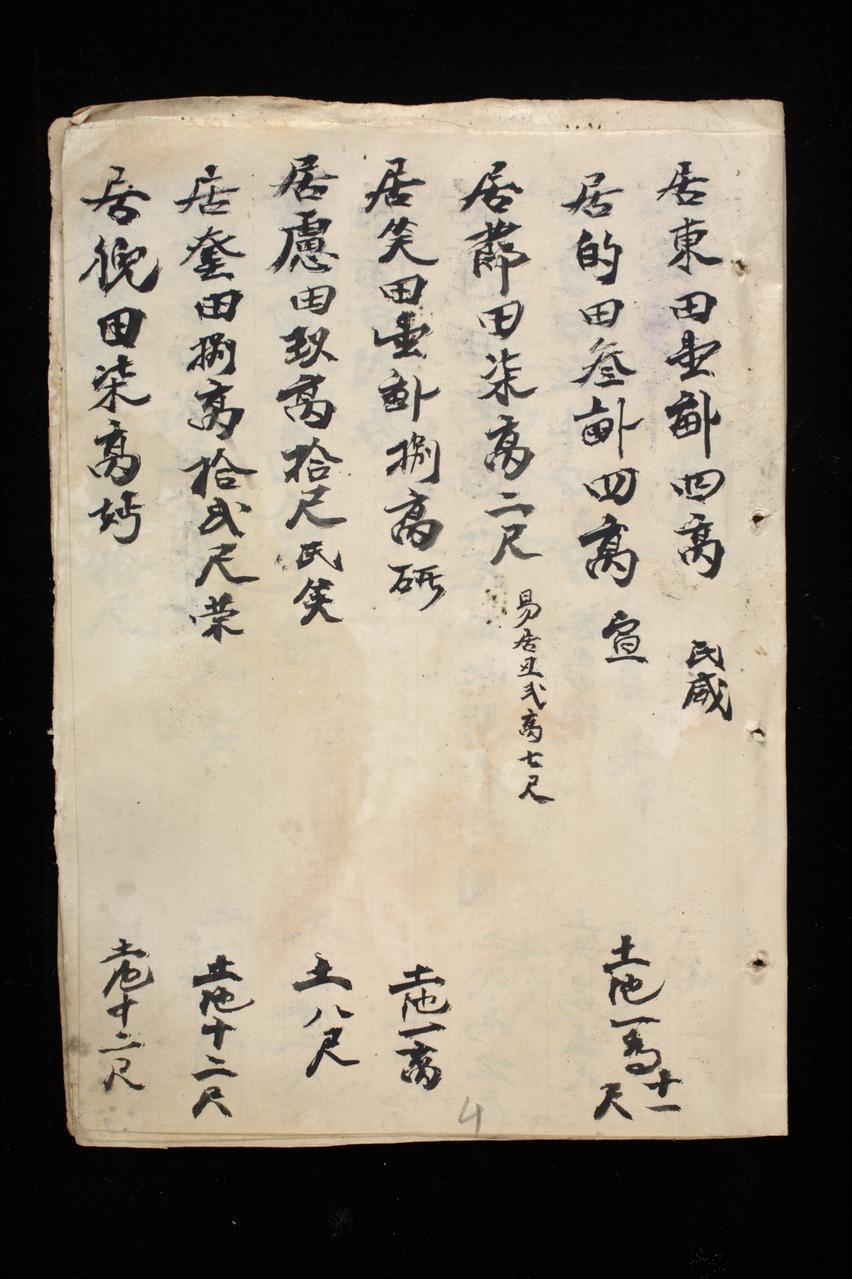 居東田壹畝四高 民咸
居的田叁畝四高 宣
土池一高十一尺
居節田柒高二尺
易居丑弍高七尺
居笑田壹畝捌高研
土池一高
居慮田玖高拾尺民笑
土八尺
居登田捌高拾弍尺荣
土池十二尺
居田柒高
土池十二尺
4